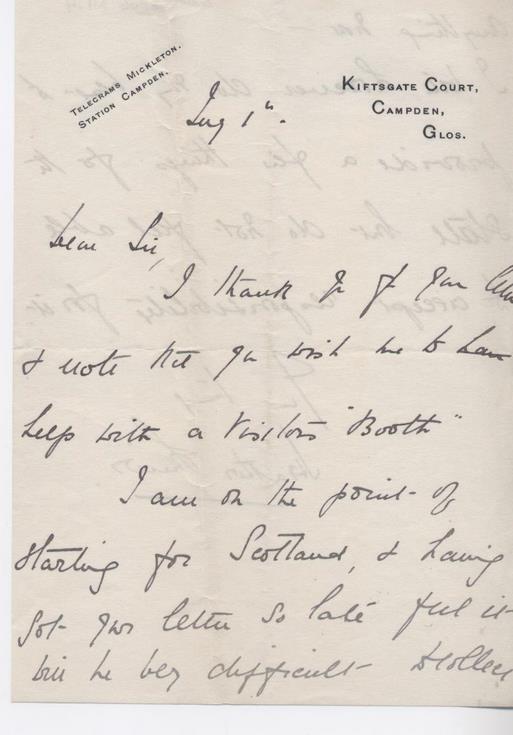 TELEGRAMS MICKLETON.
STATION CAMPDEN.
KIFTSGATE COURT,
CAMPDEN,
GLOS.
Aug 1st.
Dear Sir,
I thank you for your letter
& note that you wish me to have
help with a Visitors "Booth"
I am on the point of
starting for Scotland, & having
got your letter so late feel it
will be very difficult to collect